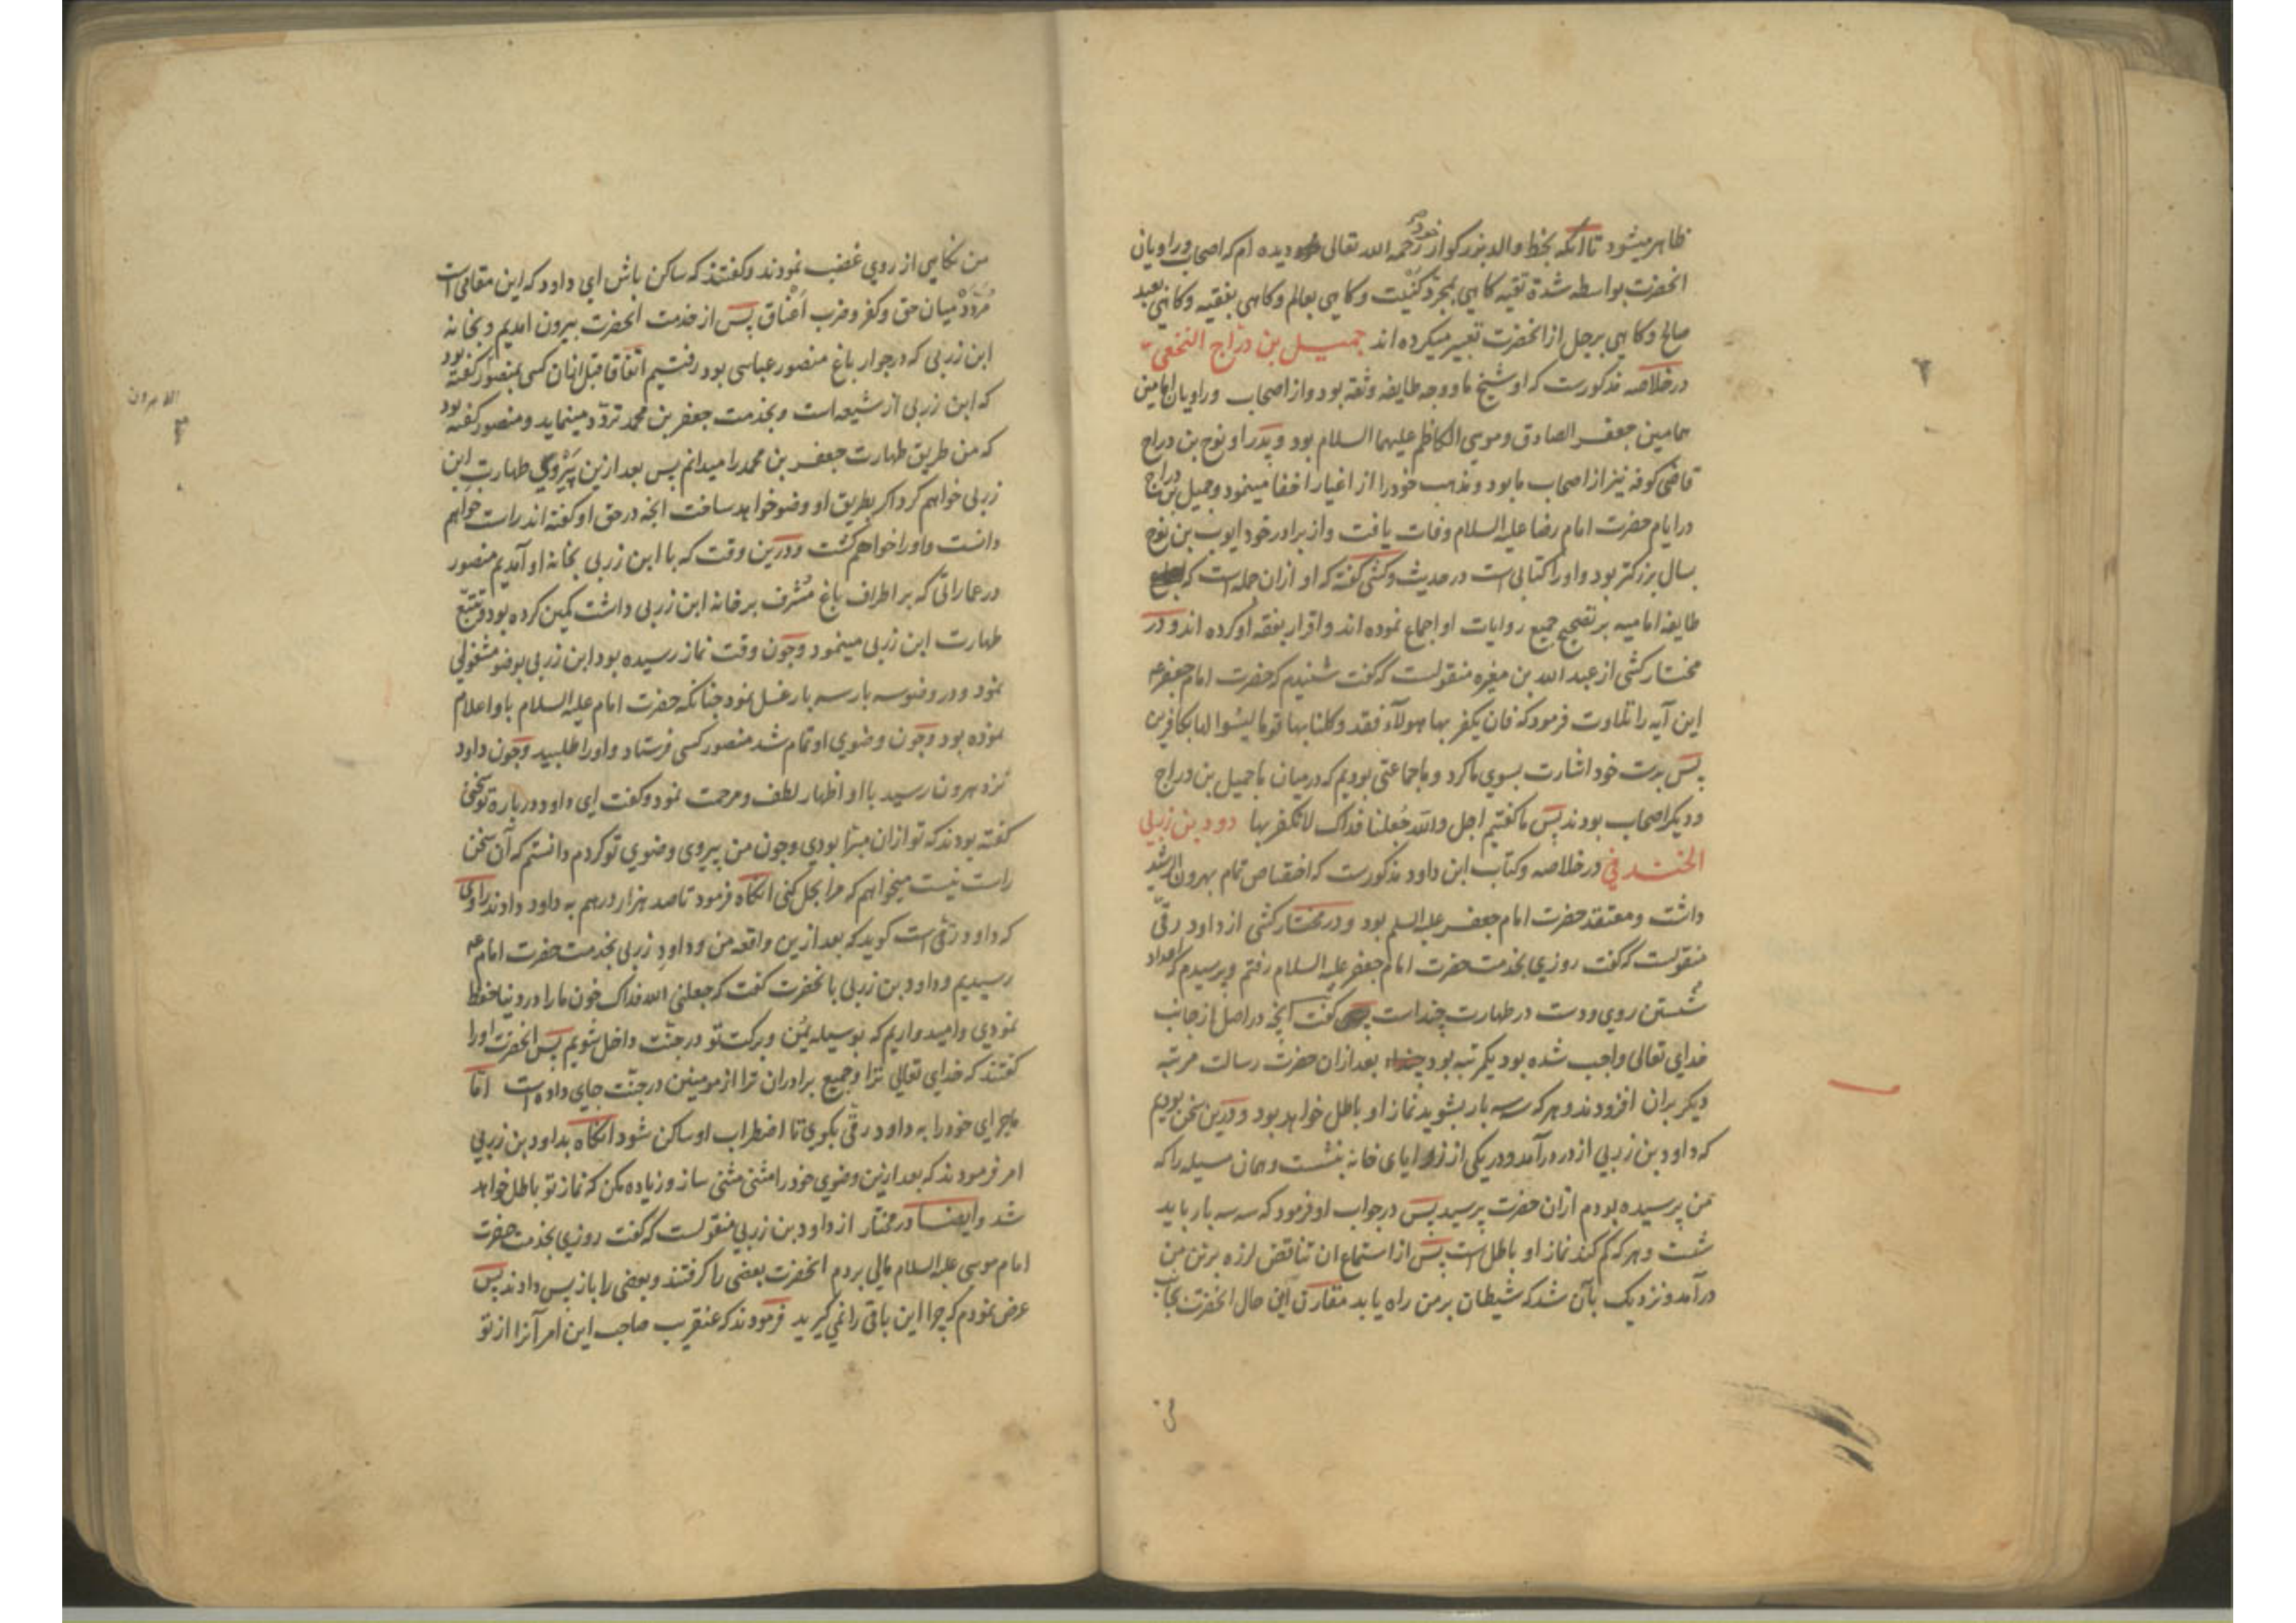 ظاهر میشود تا آنکه بخط والد بزرکوار خود رحمه الله تعالی دیده ام که اصحاب و راویان
انحضرت بواسطه شدة تقیه کاهی بمجرد کنیت و کاهی بعالم و کاهی بفقیه و کاهی بعبد
صالح و کاهی برجل از انحضرت تعبیر میکرده اند جمیل بن دراج النخعی
در خلاصه مذکورست که او شیخ ما و وجه طایفه و ثقه بود و از اصحاب و راویان امامین
همامین جعفر الصادق و موسی الکاظم علیهما السلام بود و پدر او نوح بن دراج
قاضی کوفه نیز از اصحاب ما بود و مذهب خود را از اغیار اخفا مینمود و جمیل بن دراج
در ایام حضرت امام رضا علیه السلام وفات یافت و از برادر خود ایوب بن نوح
بسال بزرکتر بود و او را کتابی است در حدیث و کشی کفته که او از ان جمله است که
طایفه امامیه بر تصحیح جمیع روایات او اجماع نموده اند و اقرار بفقه او کرده اند و در
مختار کشی از عبد الله بن مغیره منقولست که کفت شنیدم که حضرت امام جعفر ع
این آیه را تلاوت فرمود که فان یکفر بها هولآء فقد وکلنا بها قوما لیسوا لها بکافرین
پس بدست خود اشارت بسوی ما کرد و ما جماعتی بودیم که در میان ما جمیل بن دراج
و دیکر اصحاب بودند پس ما کفتیم اجل والله جُعلنا فداک لا نکفر بها دود بن زربی
الخندفی در خلاصه و کتاب ابن داود مذکورست که اختصاص تمام بهرون الرشید
داشت و معتقد حضرت امام جعفر علیه السلم بود و در مختار کشی از داود رقی
منقولست که کفت روزی بخدمت حضرت امام جعفر علیه السلام رفتم و پرسیدم که اعداد
شستن روی و دست در طهارت چند است کفت انچه در اصل از جانب
خدای تعالی واجب شده بود یکمرتبه بود بعد از ان حضرت رسالت مرتبه
دیکر بران افزودند و هر که سه بار بشوید نماز او باطل خواهد بود و درین سخن بودیم
که داود بن زربی از در درآمد و در یکی از زوایای خانه بنشست و همان مسیله را که
من پرسیده بودم ازان حضرت پرسید پس در جواب او فرمود که سه سه بار باید
شست و هر که کم کند نماز او باطل است پس از استماع ان تناقض لرزه بر تن من
درآمد و نزدیک بآن شد که شیطان بر من راه یابد مقارن این حال انحضرت بجانب
من نکاهی از روی غضب نمودند و کفتند که ساکن باش ای داود که این مقامی است
میان حق و کفر و ضرب اعناق پس از خدمت انحضرت بیرون امدیم و بخانه
ابن زربی که در جوار باغ منصور عباسی بود رفتیم اتفاقا قبل ازان کسی بمنصور کفته بود
که ابن زربی از شیعه است و بخدمت جعفر بن محمد تردد مینماید و منصور کفته بود
که من طریق طهارت جعفر بن محمد را میدانم پس بعد ازین پیروی طهارت ابن
زربی خواهم کرد اکر بطریق او وضو خواهد ساخت انچه در حق او کفته اند راست خواهم
دانست و او را خواهم کشت و درین وقت که با ابن زربی بخانه او آمدیم منصور
در عماراتی که بر اطراف باغ مُشرف بر خانه ابن زربی داشت کمین کرده بود و تتبّع
طهارت ابن زربی مینمود و چون وقت نماز رسیده بود ابن زربی بوضو مشغولی
نمود و در وضو سه بار سه بار غسل نمود چنانکه حضرت امام علیه السلام باو اعلام
نموده بود و چون وضوی او تمام شد منصور کسی فرستاد و او را طلبید و چون داود
نزد هرون رسید با او اظهار لطف و مرحمت نمود و کفت ای داود در باره تو سخنی
کفته بودند که تو ازان مبرّا بودی و چون من پیروی وضوی تو کردم دانستم که آن سخن
راست نیست میخواهم که مرا بحل کنی انکاه فرمود تا صد هزار درهم به داود دادند راوی
که داود رقی است کوید که بعد ازین واقعه من و داود زربی بخدمت حضرت امام ع
رسیدیم و داود بن زربی با انحضرت کفت که جعلنی الله فداک خون ما را در دنیا حفظ
نمودی و امیدواریم که بوسیله یُمن و برکت تو در جنّت داخل شویم پس انحضرت او را
کفتند که خدای تعالی ترا و جمیع برادران ترا از مومنین در جنّت جای داده است اما
ماجرای خود را به داود رقی بکوی تا اضطراب او ساکن شود انکاه بداود بن زربی
امر فرمودند که بعد ازین وضوی خود را مثنی مثنی ساز و زیاده مکن که نماز تو باطل خواهد
شد و ایضا در مختار از داود بن زربی منقولست که کفت روزی بخدمت حضرت
امام موسی علیه السلام مالی بردم انحضرت بعضی را کرفتند و بعضی را باز پس دادند پس
عرض نمودم که چرا این باقی را نمی کیرید فرمودند که عنقریب صاحب این امر آنرا از تو